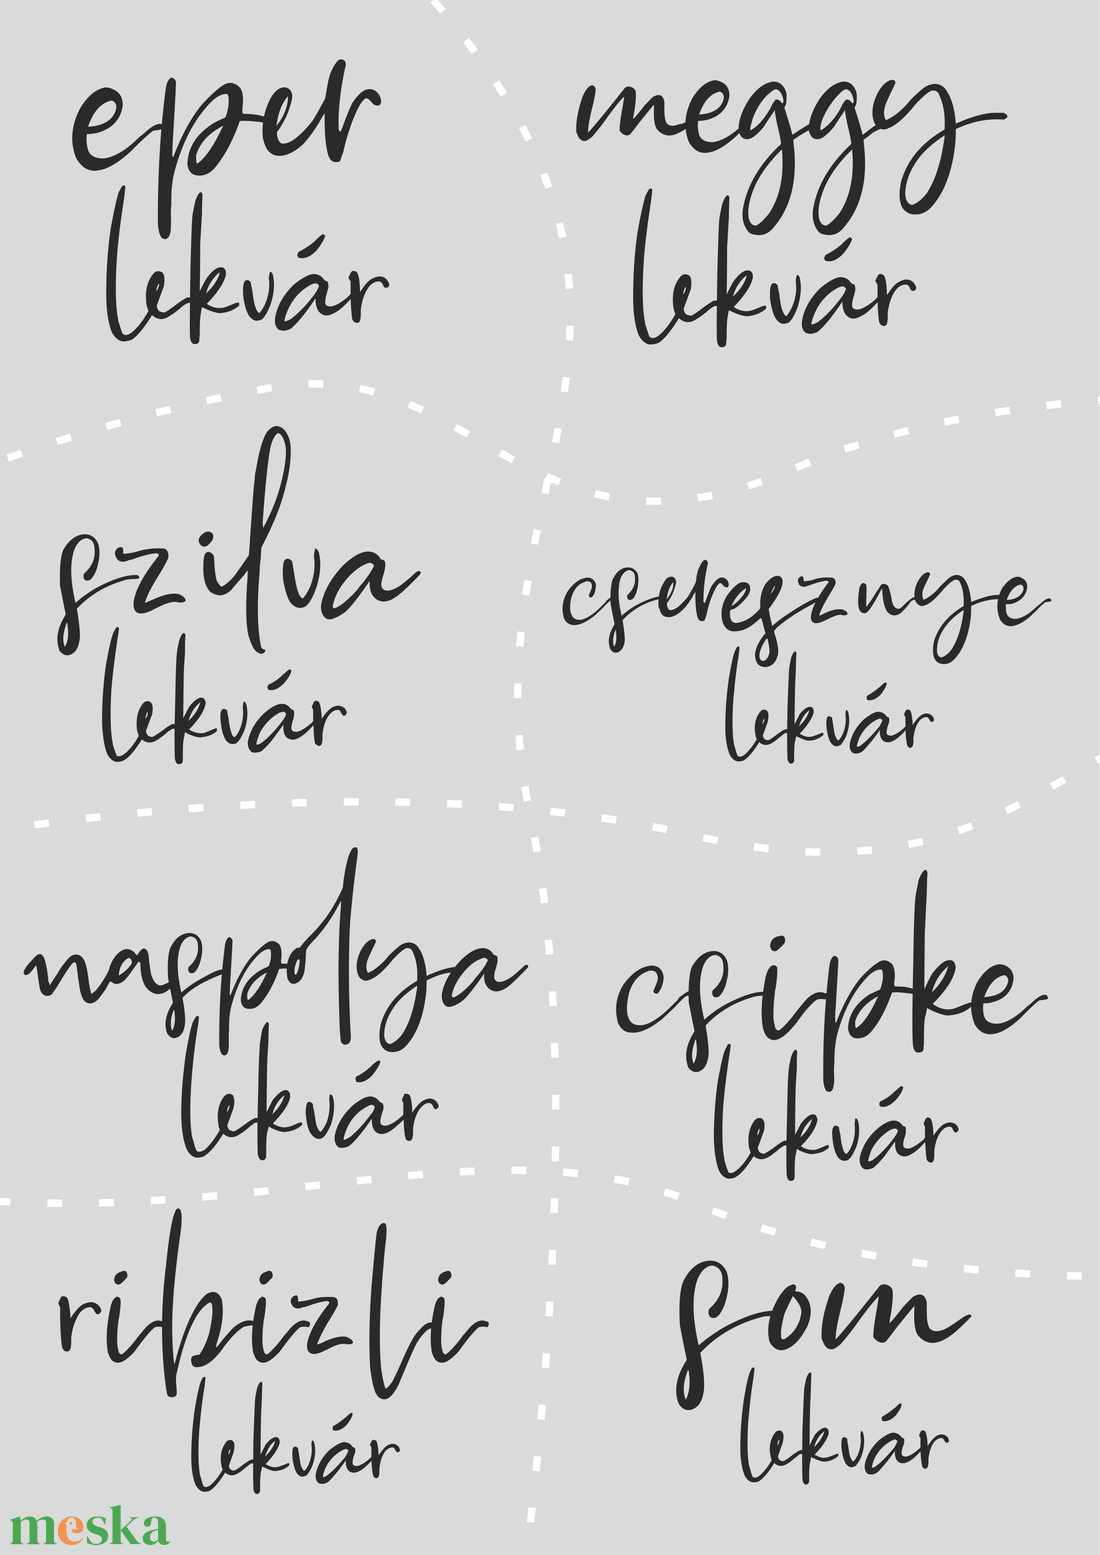 eper
lekvár
meggy
lekvár
szilva
lekvár
cseresznye
lekvár
naspolya
lekvár
csipke
lekvár
ribizli
lekvár
som
lekvár
meska